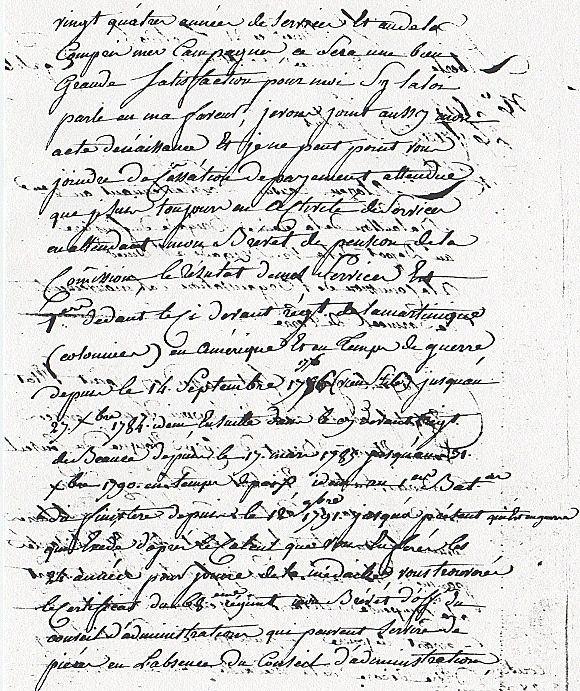 vingt quatre année de Service Et audela
Compri mes Campagnes ce Sera une bien
Grande Satisfaction pour moi Sy la loi
parle en ma faveur, je vous joint aussy mon
acte de naissance Et je ne peut point vous
joindre de Cessation de payement attendue
que je suis toujours en activité de Service
en attendant mon Brevet de pension de la
Comission le Résultat de mes Services Est
dedant le Ci devant régt de la martinique
(colonnies) en amérique Et en Temps de guerre
depuis le 14 Septembre (vieux Stile) jusquau
27 Xbre 1784 idem Ensuitte dans le cy devant Regt
de Beauce depuis le 17 mars 1785 jusquau 31
Xbre 1790 en Temps de paix idem au 1er Batan
du finistere depuis le 12 9bre 1791 jusqua présent qui est en guerre
d'après le Calcul que vous les
24 année pour jouire de la médaille, vous trouveré
le Certificat du régimt un Brevet d'off. du
conseil d'administration qui peuvent Servire de
pièces en L'absence du Conseil d'administration